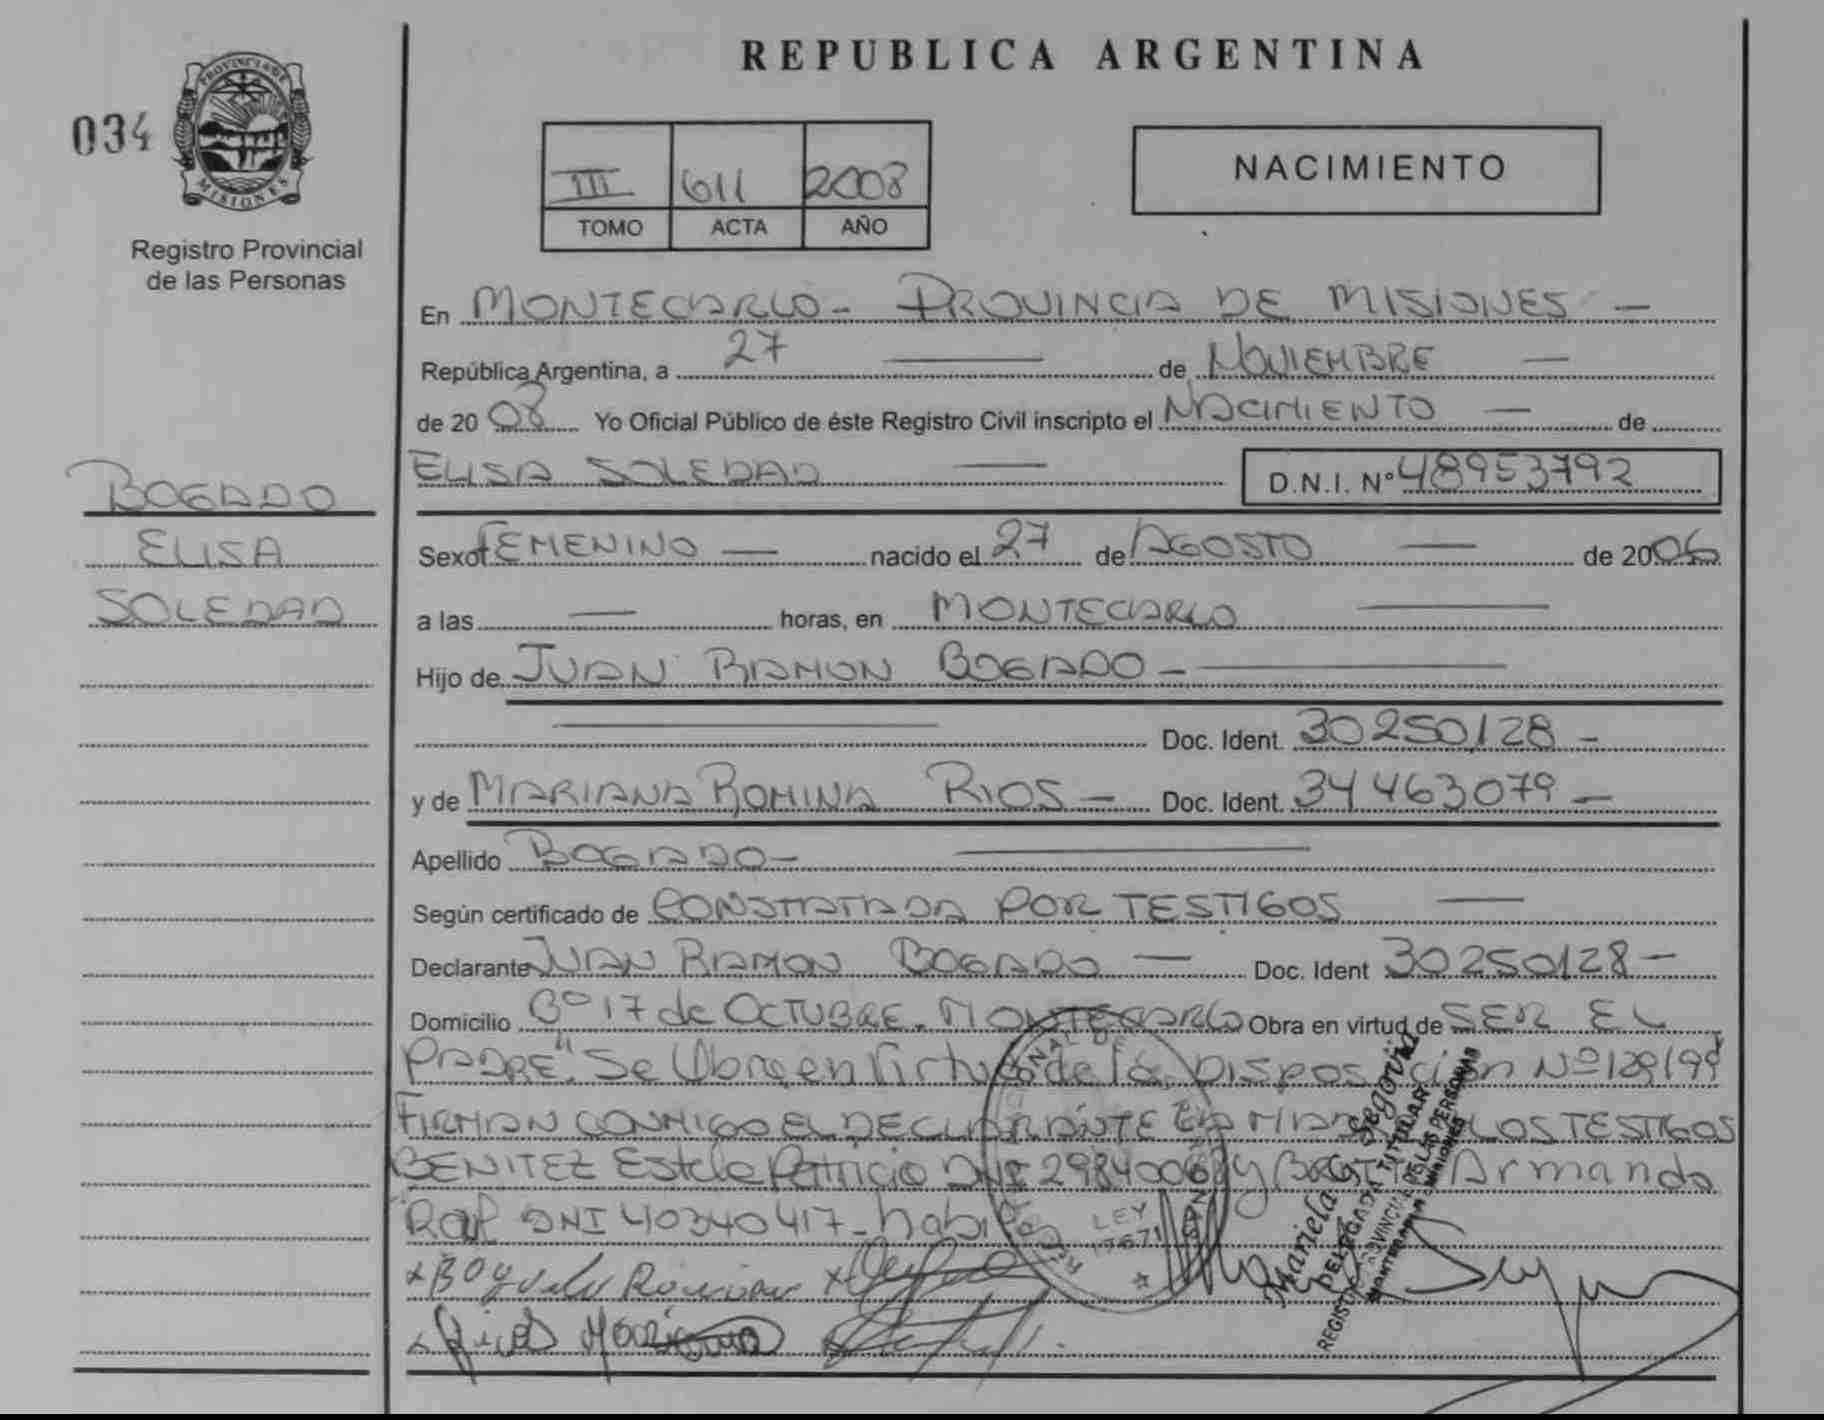 REPUBLICA ARGENTINA
034
PROVINCIA DE MISIONES
Registro Provincial
de las Personas
III 611 2008
TOMO ACTA AÑO
NACIMIENTO
En MONTECARLO - PROVINCIA DE MISIONES -
República Argentina, a 27 — de NOVIEMBRE —
de 20 08 Yo Oficial Público de éste Registro Civil inscripto el NACIMIENTO — de
ELISA SOLEDAD — D.N.I. Nº 48953792
BOGADO
ELISA
SOLEDAD
Sexo FEMENINO — nacido el 27 de AGOSTO — de 2006
a las — horas, en MONTECARLO —
Hijo de JUAN RAMON BOGADO - —
— Doc. Ident. 30250128 -
y de MARIANA ROMINA RIOS - Doc. Ident. 34463079 -
Apellido BOGADO - —
Según certificado de CONSTATADA POR TESTIGOS —
Declarante JUAN RAMON BOGADO — Doc. Ident 30250128 -
Domicilio Bº 17 de OCTUBRE. MONTECARLO Obra en virtud de SER EL
PADRE". Se Obra en Virtud de la Disposición Nº 129/99
FIRMAN CONMIGO EL DECLARANTE LA LOS TESTIGOS
BENITEZ Estela Patricia DNI y Armando
DNI 40340417 -
LEY
17671
Mariela Segovia
DELEGADA TITULAR
REGISTRO PROVINCIAL DE LAS PERSONAS
MONTECARLO - MISIONES